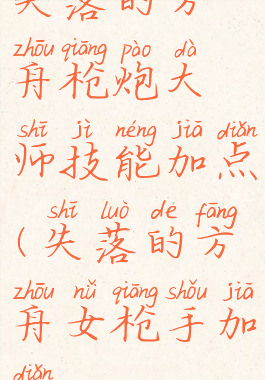 失落的方
zhōu qiāng pào dà
舟枪炮大
shī jì néng jiā diǎn
师技能加点
shī luò de fāng
(失落的方
zhōu nǚ qiāng shǒu jiā
舟女枪手加
diǎn